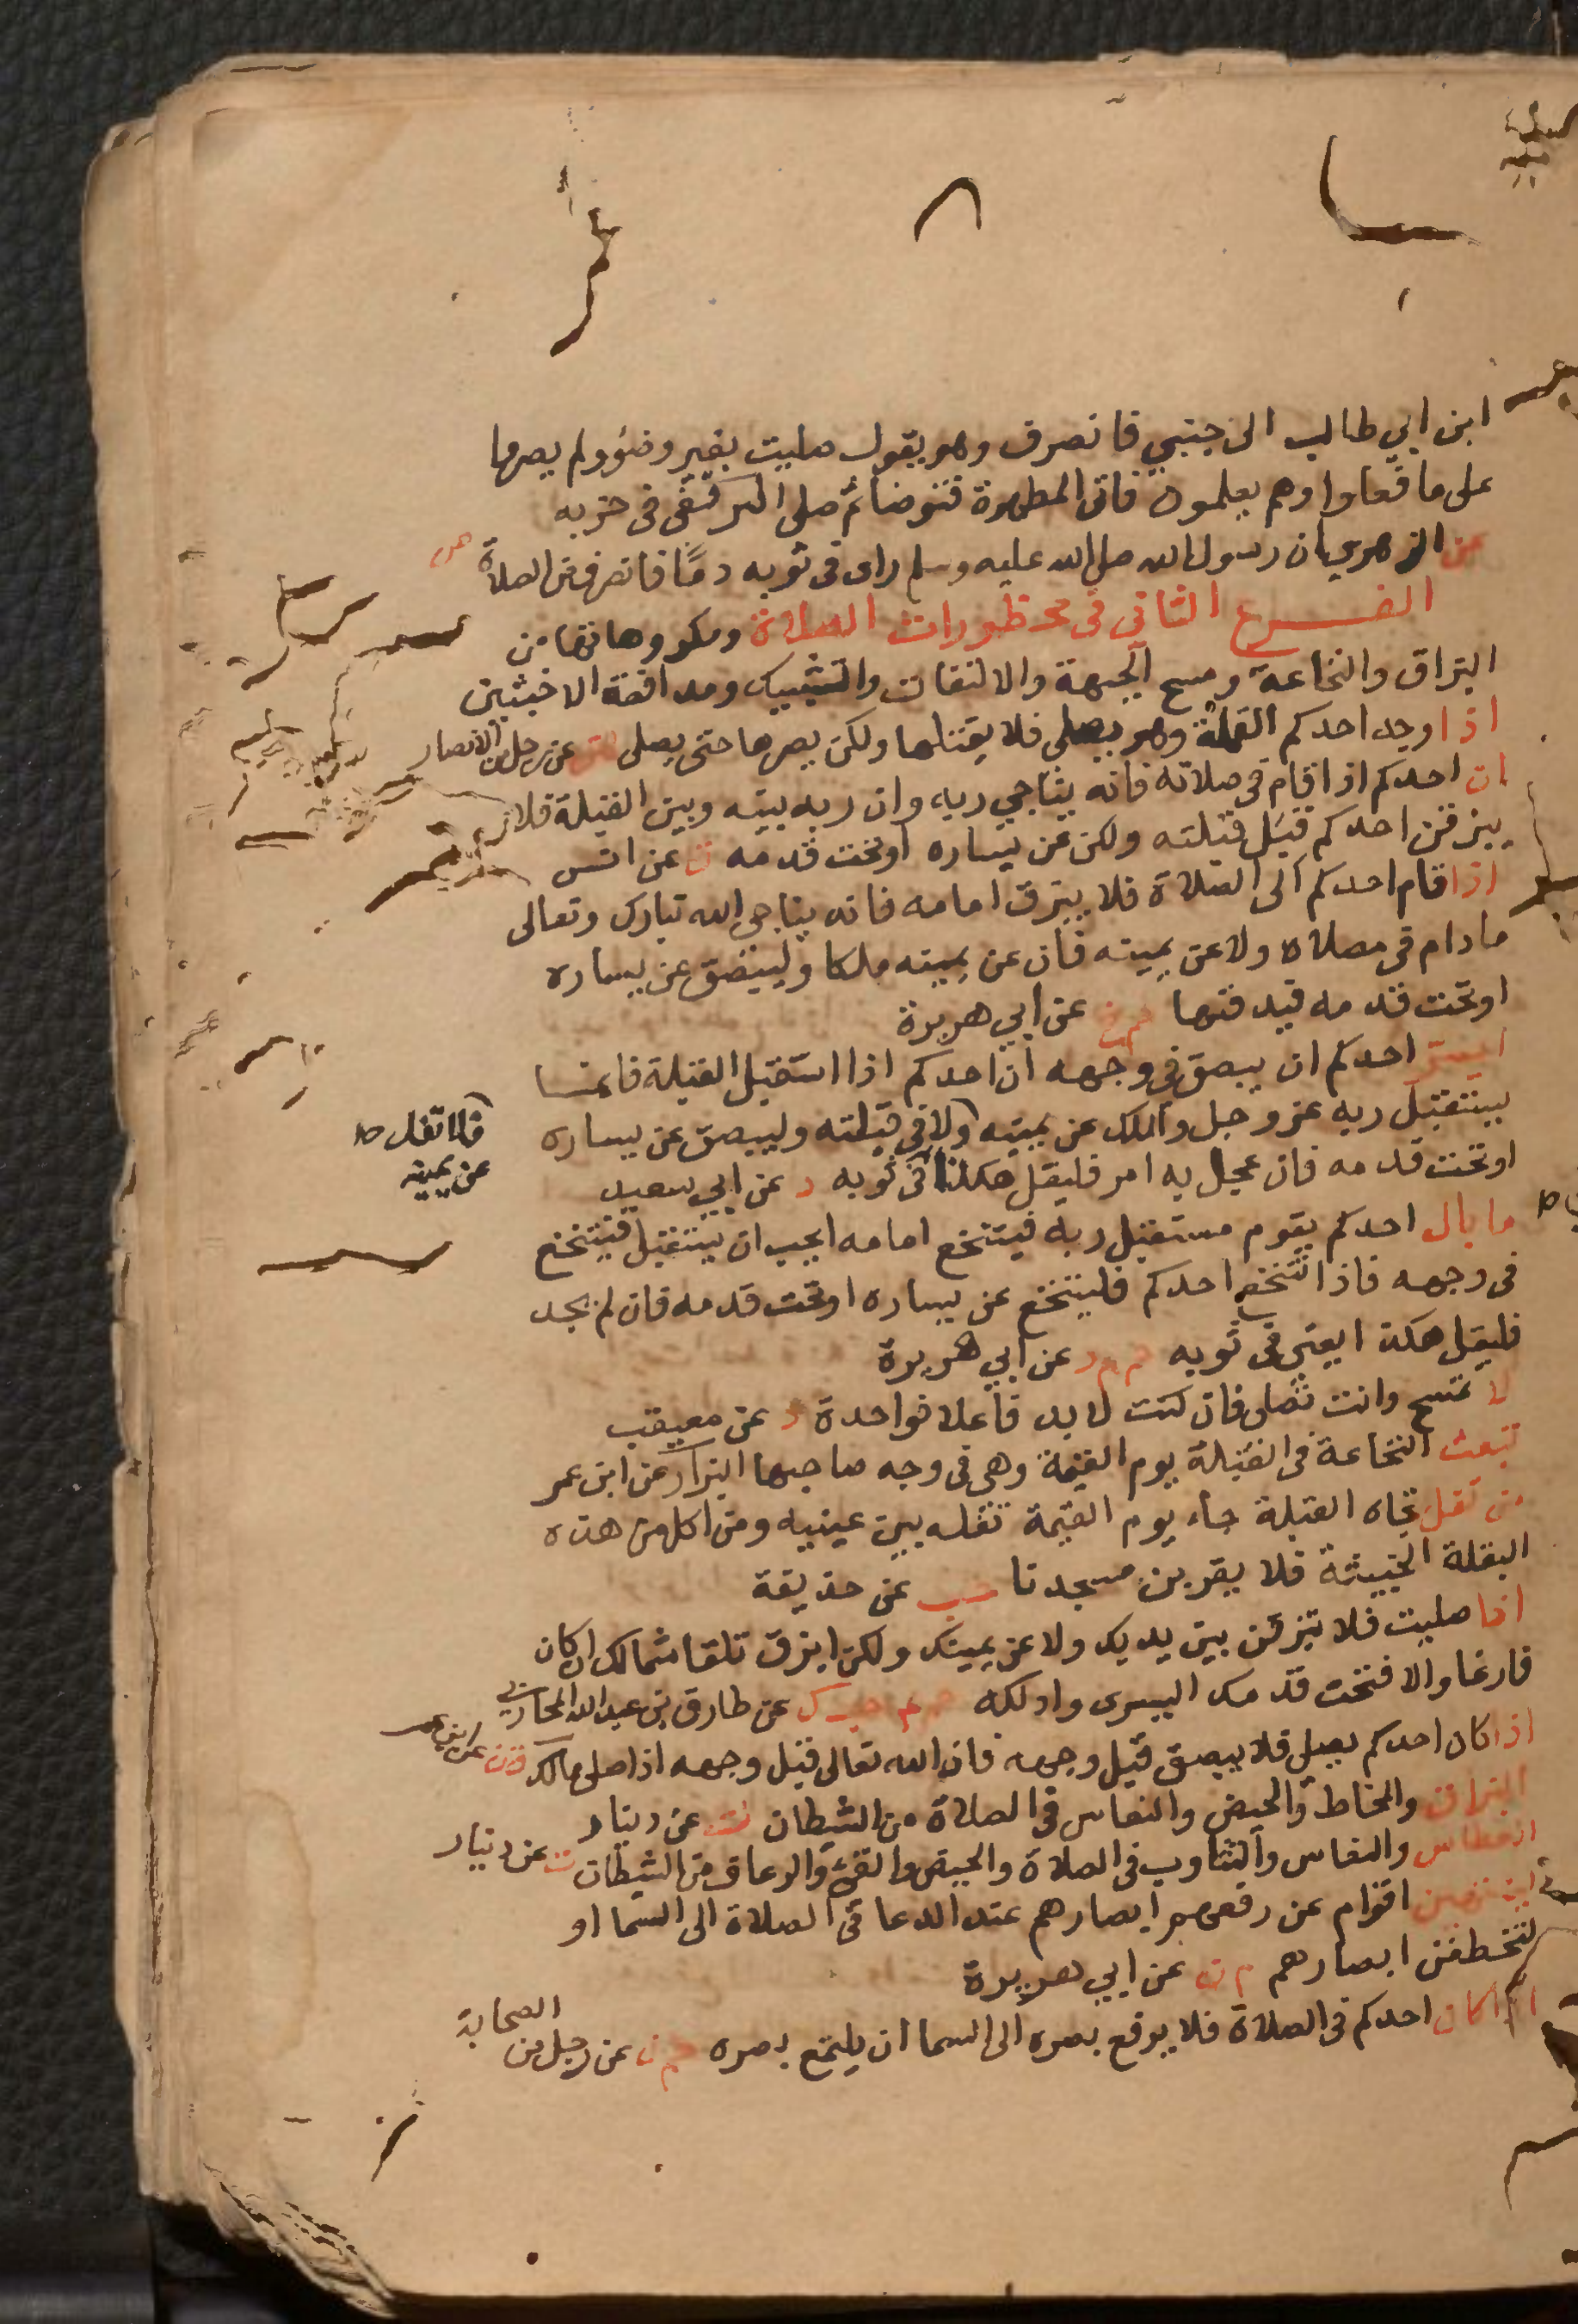 ابن ابي طالب الى جنبي فانصرف وهو يقول صليت بغير وضؤ ولم يصرها
على ما فعلوا وهم يعلمون فاتى المطهرة فتوضأ ثم صلى
عن الزهري ان رسول الله صلى الله عليه وسلم راى في ثوبه دمًا فانصرف من الصلاة
الفرع الثاني في محظورات الصلاة ومكروهاتها من
البزاق والنخاعة ومسح الجبهة والالتفات والتشبيك ومدافعة الاخبثين
اذا وجد احدكم القملة وهو يصلي فلا يقتلها ولكن يصرها حتى يصلي عن رجل من الانصار
ان احدكم اذا قام في صلاته فانه يناجي ربه وان ربه بينه وبين القبلة فلا
يبزقن احدكم قبل قبلته ولكن عن يساره او تحت قدمه عن انس
اذا قام احدكم الى الصلاة فلا يبزق امامه فانه يناجي الله تبارك وتعالى
ما دام في مصلاه ولا عن يمينه فان عن يمينه ملكا وليبصق عن يساره
او تحت قدمه فيدفنها عن ابي هريرة
احدكم ان يبصق في وجهه ان احدكم اذا استقبل القبلة فانما
يستقبل ربه عز وجل والملك عن يمينه ولا في قبلته وليبصق عن يساره
فلا تفل
عن يمينه
او تحت قدمه فان عجل به امر فليقل هكذا في ثوبه د عن ابي سعيد
ما بال احدكم يقوم مستقبل ربه فيتنخع امامه ايحب ان يستقبل فيتنخع
في وجهه فاذا تنخع احدكم فليتنخع عن يساره او تحت قدمه فان لم يجد
فليقل هكذا يعني في ثوبه حم م د عن ابي هريرة
لا تمسح وانت تصلي فان كنت لا بد فاعلا فواحدة د عن معيقب
تبعث النخاعة في القبلة يوم القيمة وهي في وجه صاحبها البزار عن ابن عمر
من تفل تجاه القبلة جاء يوم القيمة تفله بين عينيه ومن اكل من هذه
البقلة الخبيثة فلا يقربن مسجدنا حب عن حذيفة
اذا صليت فلا تبزقن بين يديك ولا عن يمينك ولكن ابزق تلقا شمالك ان كان
فارغا والا فتحت قدمك اليسرى وادلكه عن طارق بن عبد الله المحاربي
اذا كان احدكم يصلي فلا يبصق قبل وجهه فان الله تعالى قبل وجهه اذا صلى مالك ق ن عن ابن عمر
البزاق والمخاط والحيض والنعاس في الصلاة من الشيطان ت عن دينار
العطاس والنعاس والتثاوب في الصلاة والحيض والقئ والرعاف من الشيطان ت عن دينار
لينتهين اقوام عن رفعهم ابصارهم عند الدعا في الصلاة الى السما او
لتخطفن ابصارهم م ن عن ابي هريرة
اذا كان احدكم في الصلاة فلا يرفع بصره الى السما ان يلتمع بصره حم ن عن رجل من الصحابة